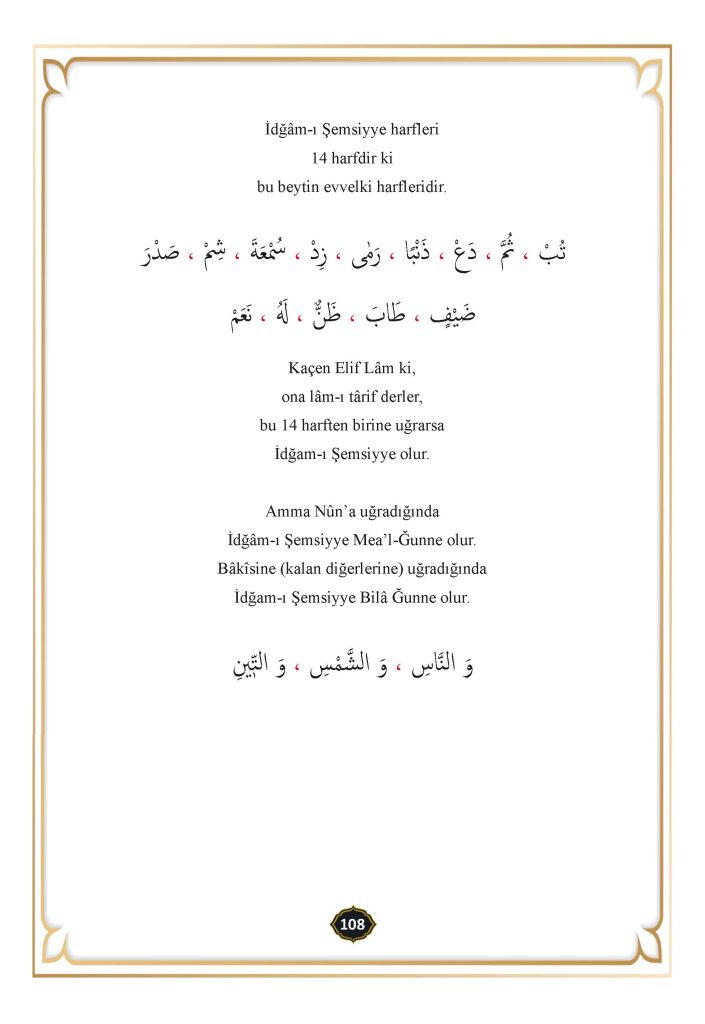 İdğâm-ı Şemsiyye harfleri
14 harfdir ki
bu beytin evvelki harfleridir.
تُبْ ، ثُمَّ ، دَعْ ، ذَنْبًا ، رَمٰى ، زِدْ ، سُمْعَةَ ، شِمْ ، صَدْرَ
ضَيْفٍ ، طَابَ ، ظَنٌّ ، لَهُ ، نَعَمْ
Kaçen Elif Lâm ki,
ona lâm-ı târif derler,
bu 14 harften birine uğrarsa
İdğam-ı Şemsiyye olur.
Amma Nûn’a uğradığında
İdğâm-ı Şemsiyye Mea’l-Ğunne olur.
Bâkîsine (kalan diğerlerine) uğradığında
İdğam-ı Şemsiyye Bilâ Ğunne olur.
وَ النَّاسِ ، وَ الشَّمْسِ ، وَ التّٖينِ
108